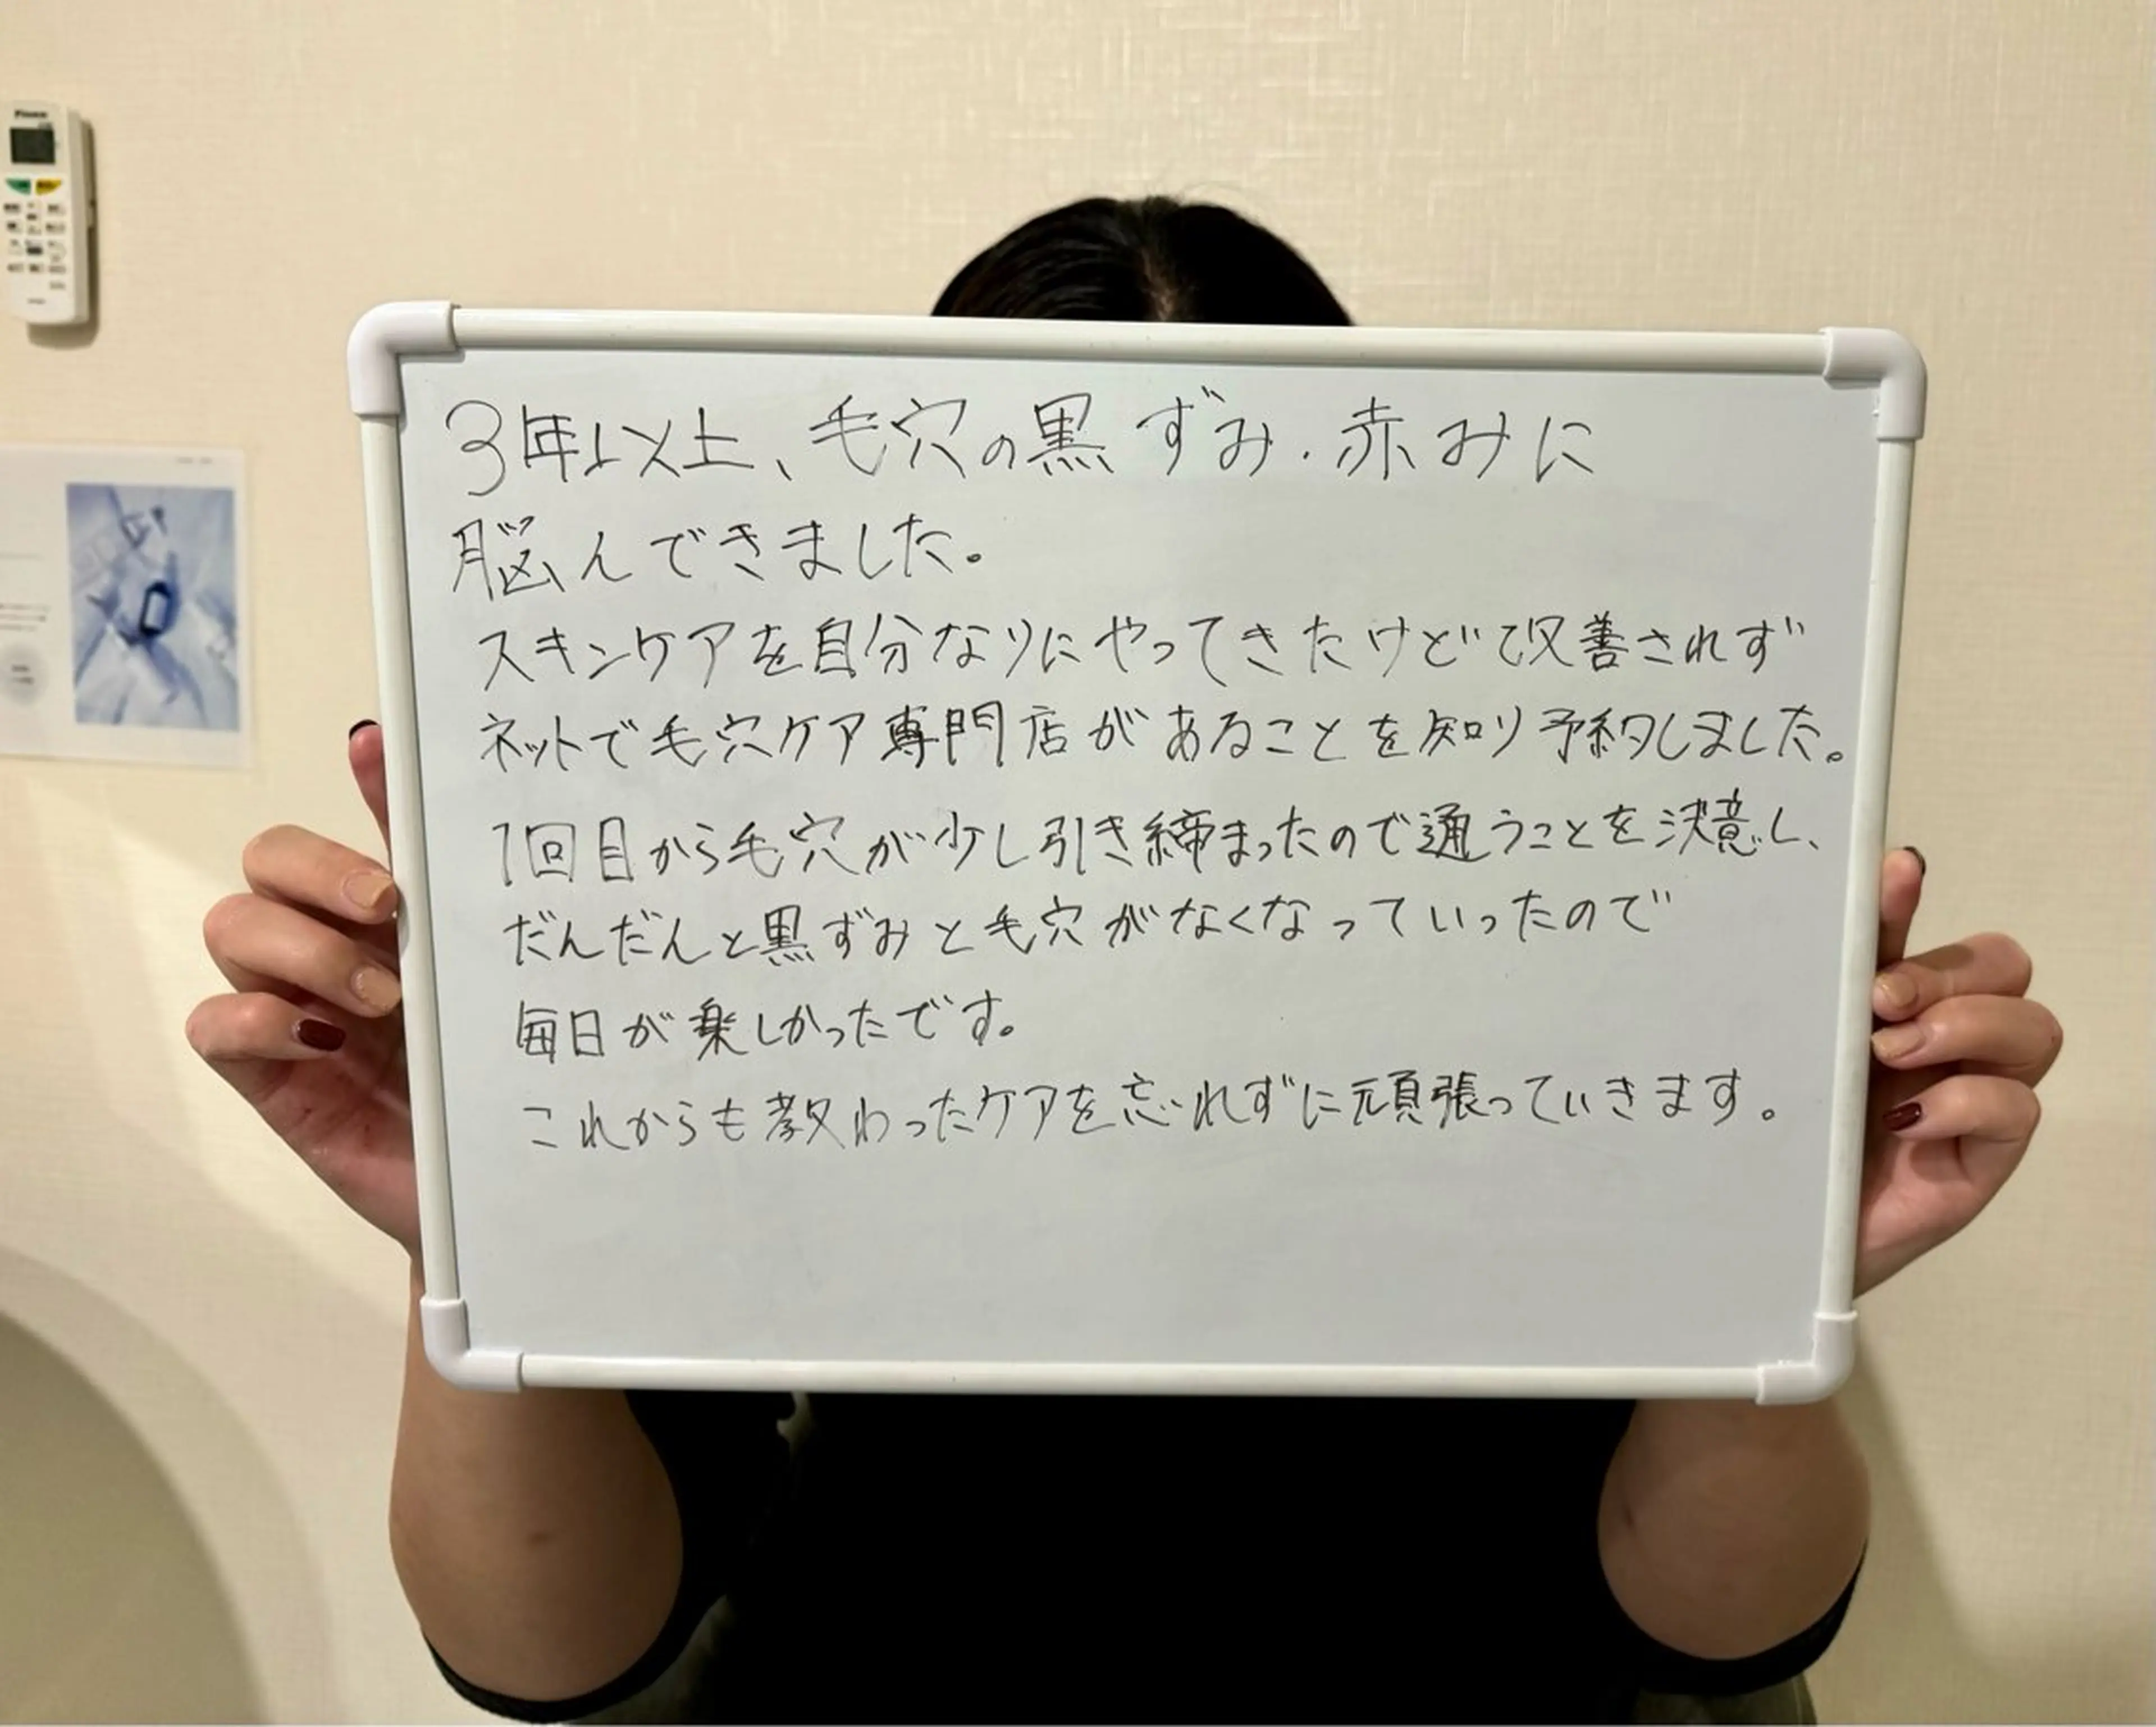 3年以上、毛穴の黒ずみ・赤みに
脳んできました。
スキンケアを自分なりにやってきたけど改善されず
ネットで毛穴ケア専門店があることを知り予約しました。
1回目から毛穴が少し引き締まったので通うことを決意し、
だんだんと黒ずみと毛穴がなくなっていったので
毎日が楽しかったです。
これからも教わったケアを忘れずに頑張っていきます。